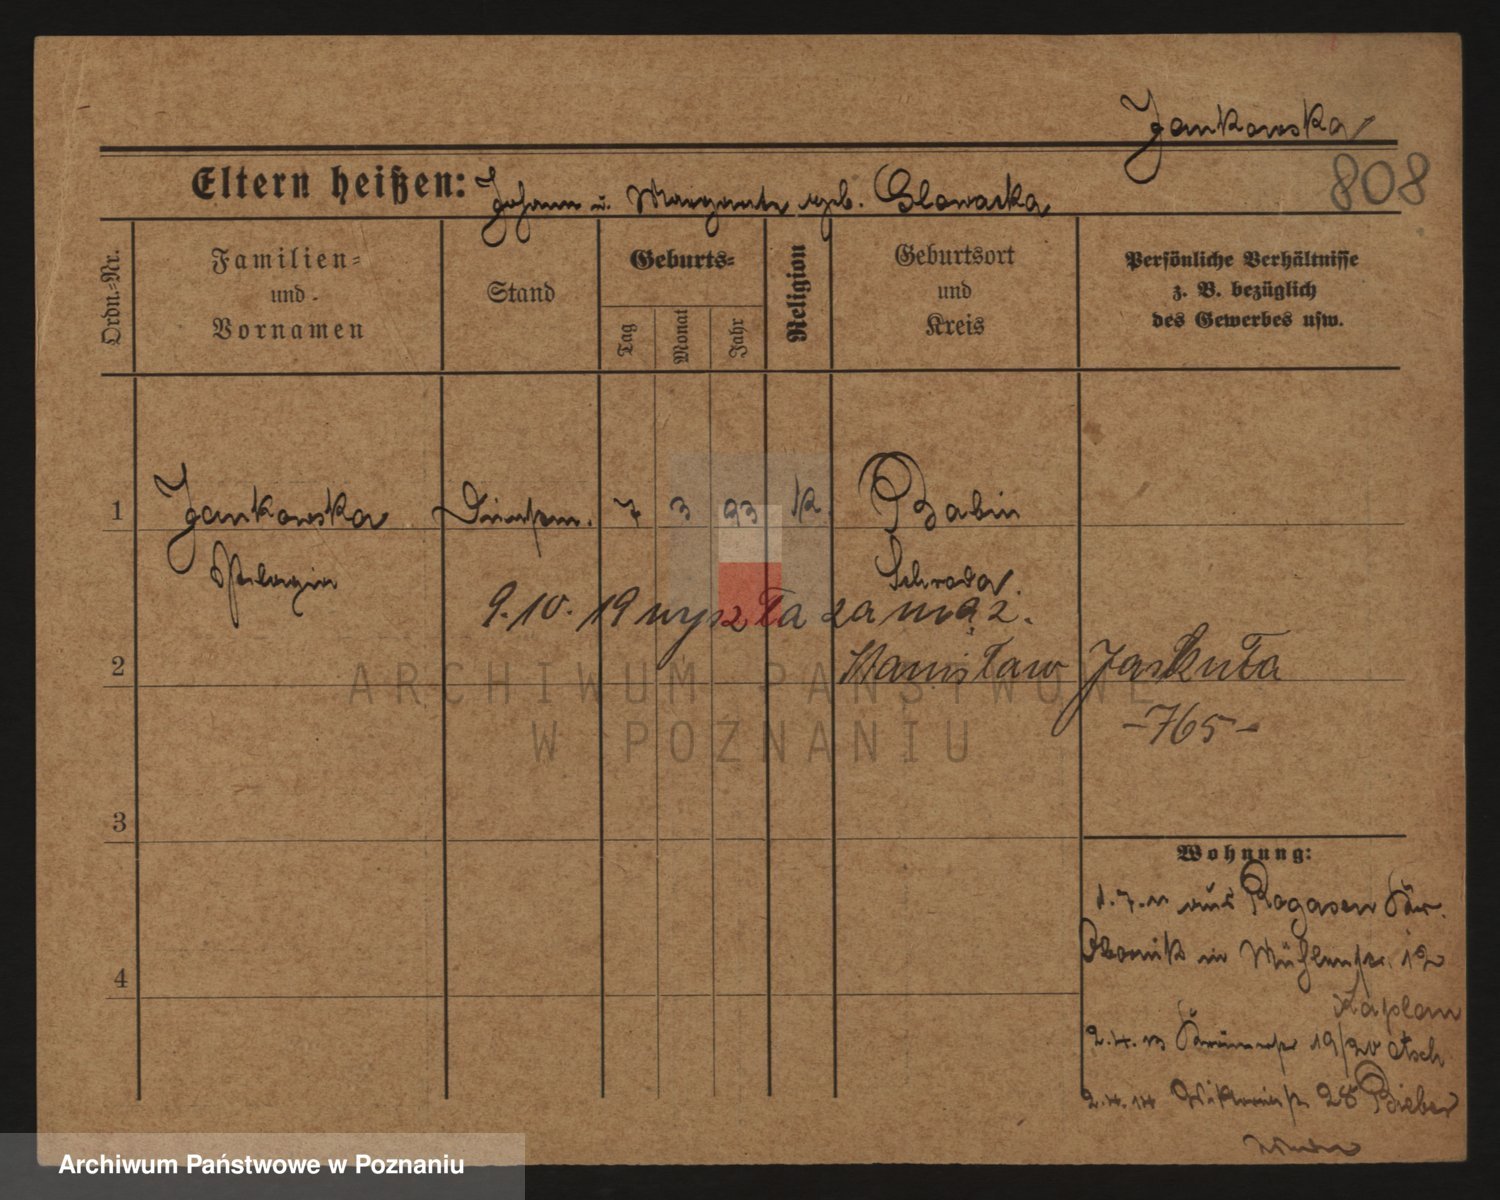 Jankowska
808
Eltern heißen: Johann u. Margareta geb. Glowacka
Ordn.=Nr.
Familien=
und
Vornamen
Stand
Geburts=
Tag
Monat
Jahr
Religion
Geburtsort
und
Kreis
Persönliche Verhältnisse
z. B. bezüglich
des Gewerbes usw.
1 Jankowska Dienstm. 7 3 93 k. Babin
Pelagia Schroda.
9.10.19 wyszła za mąż.
2 Stanisław Jaskuła
-765-
3
Wohnung:
1.7.11 aus Rogasen Kr.
Obornik in Mühlenstr. 12
4
Kaplan
2.4.13 19/20 Asch
2.4.14 28 Bieber
ARCHIWUM PAŃSTWOWE
W POZNANIU
Archiwum Państwowe w Poznaniu